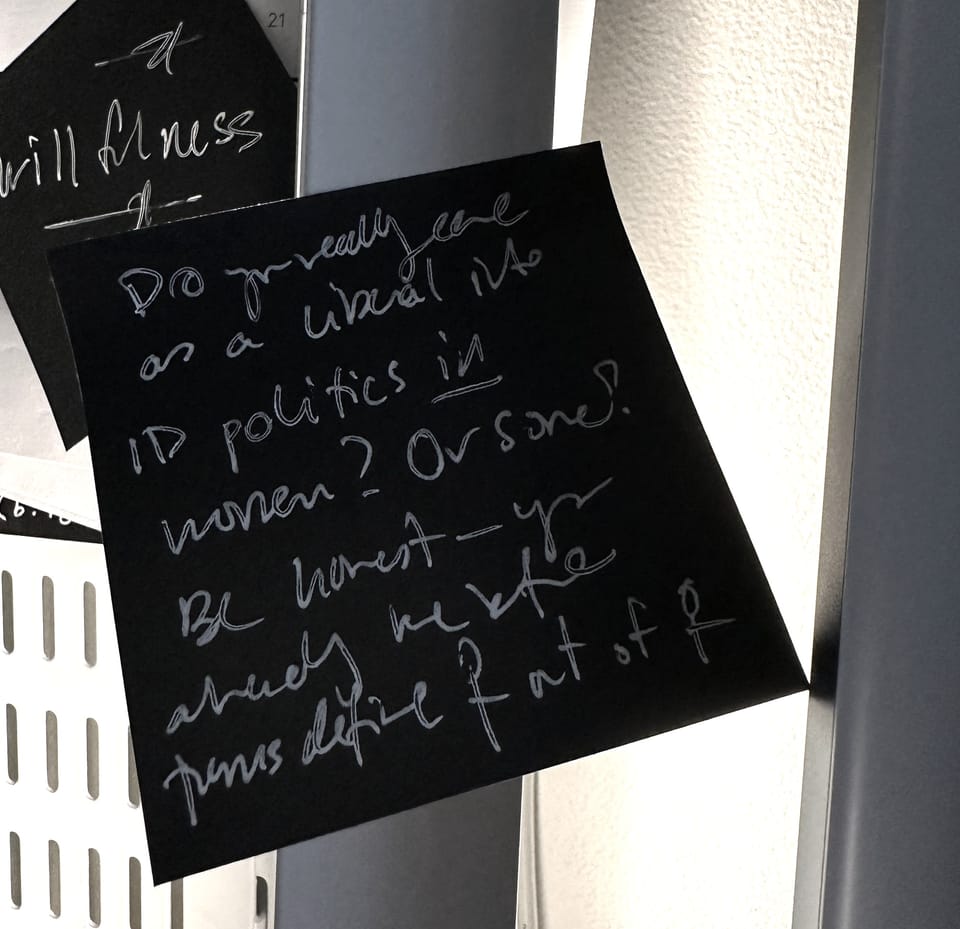 21
willfulness
Do yr really care
as a liberal into
ID politics in
women? Or some?
Be honest — yr
already
trans define ♀ out of ♀